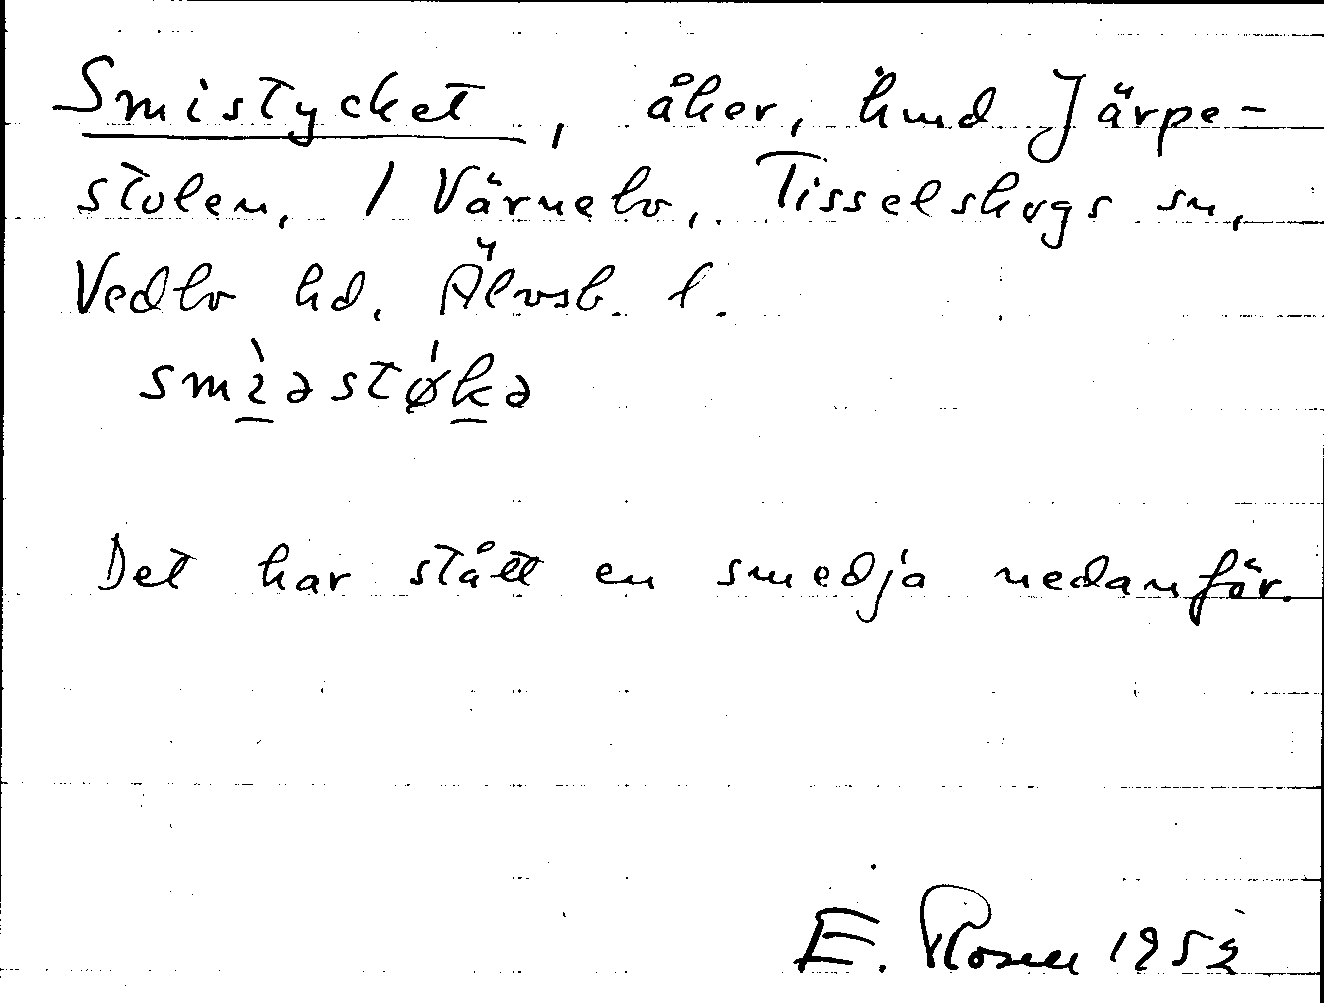 Smistycket, åker, hmd Järpe-
stolen, 1 Värnebo, Tisselskogs sn,
Vedbo hd. Älvsb. l.
smìəstǿkə
Det har stått en smedja nedanför.
E. Rosen 1952